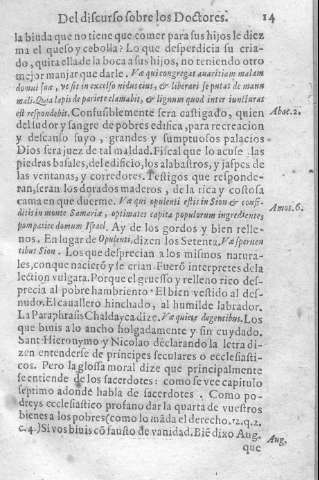 Del discurso sobre los Doctores. 14
la biuda que no tiene que comer para sus hijos le diez
ma el queso y cebolla? Lo que desperdicia su cria-
do, quita ella de la boca a sus hijos, no teniendo otro
mejor manjar que darle. Væ qui congregat auaritiam malam
domui suæ, vt sit in excelso nidus eius, & liberari se putat de manu
mali. Quia lapis de pariete clamabit, & lignum quod inter iuncturas
est respondebit. Confusiblemente sera castigado, quien Abac.2.
del sudor y sangre de pobres edifica, para recreacion
y descanso suyo, grandes y sumptuosos palacios
Dios sera juez de tal maldad. Fiscal que lo acuse las
piedras basales, del edificio, los alabastros, y jaspes de
las ventanas, y corredores. Testigos que responde-
ran, seran los dorados maderos, de la rica y costosa
cama en que duerme. Væ qui opulenti estis in Sion & confi-
ditis in monte Samariæ, optimates capita populorum ingredientes Amos.6.
pompatice domum Israel. Ay de los gordos y bien relle-
nos. En lugar de Opulentis, dizen los Setenta, Væ spernen
tibus Sion. Los que desprecian a los mismos natura-
les, con que nacierō y se crian. Fuerō interpretes de la
lection vulgara. Porque el gruesso y relleno rico des-
precia al pobre hambriento. El bien vestido al des-
nudo. El cauallero hinchado, al humilde labrador.
La Paraphrasis Chaldayca dize. Væ quiete degentibus. Los
que biuis a lo ancho holgadamente y sin cuydado.
Sant Hieronymo y Nicolao declarando la letra di-
zen entenderse de principes seculares o ecclesiasti-
cos. Pero la glossa moral dize que principalmente
se entiende de los sacerdotes: como se vee capitulo
septimo adonde habla de sacerdotes. Como po-
dreys ecclesiastico profano dar la quarta de vuestros
bienes a los pobres (como lo māda el derecho. 12.q.2.
c.4.) Si vos biuis cō fausto de vanidad. Biē dixo Aug. Aug.
que